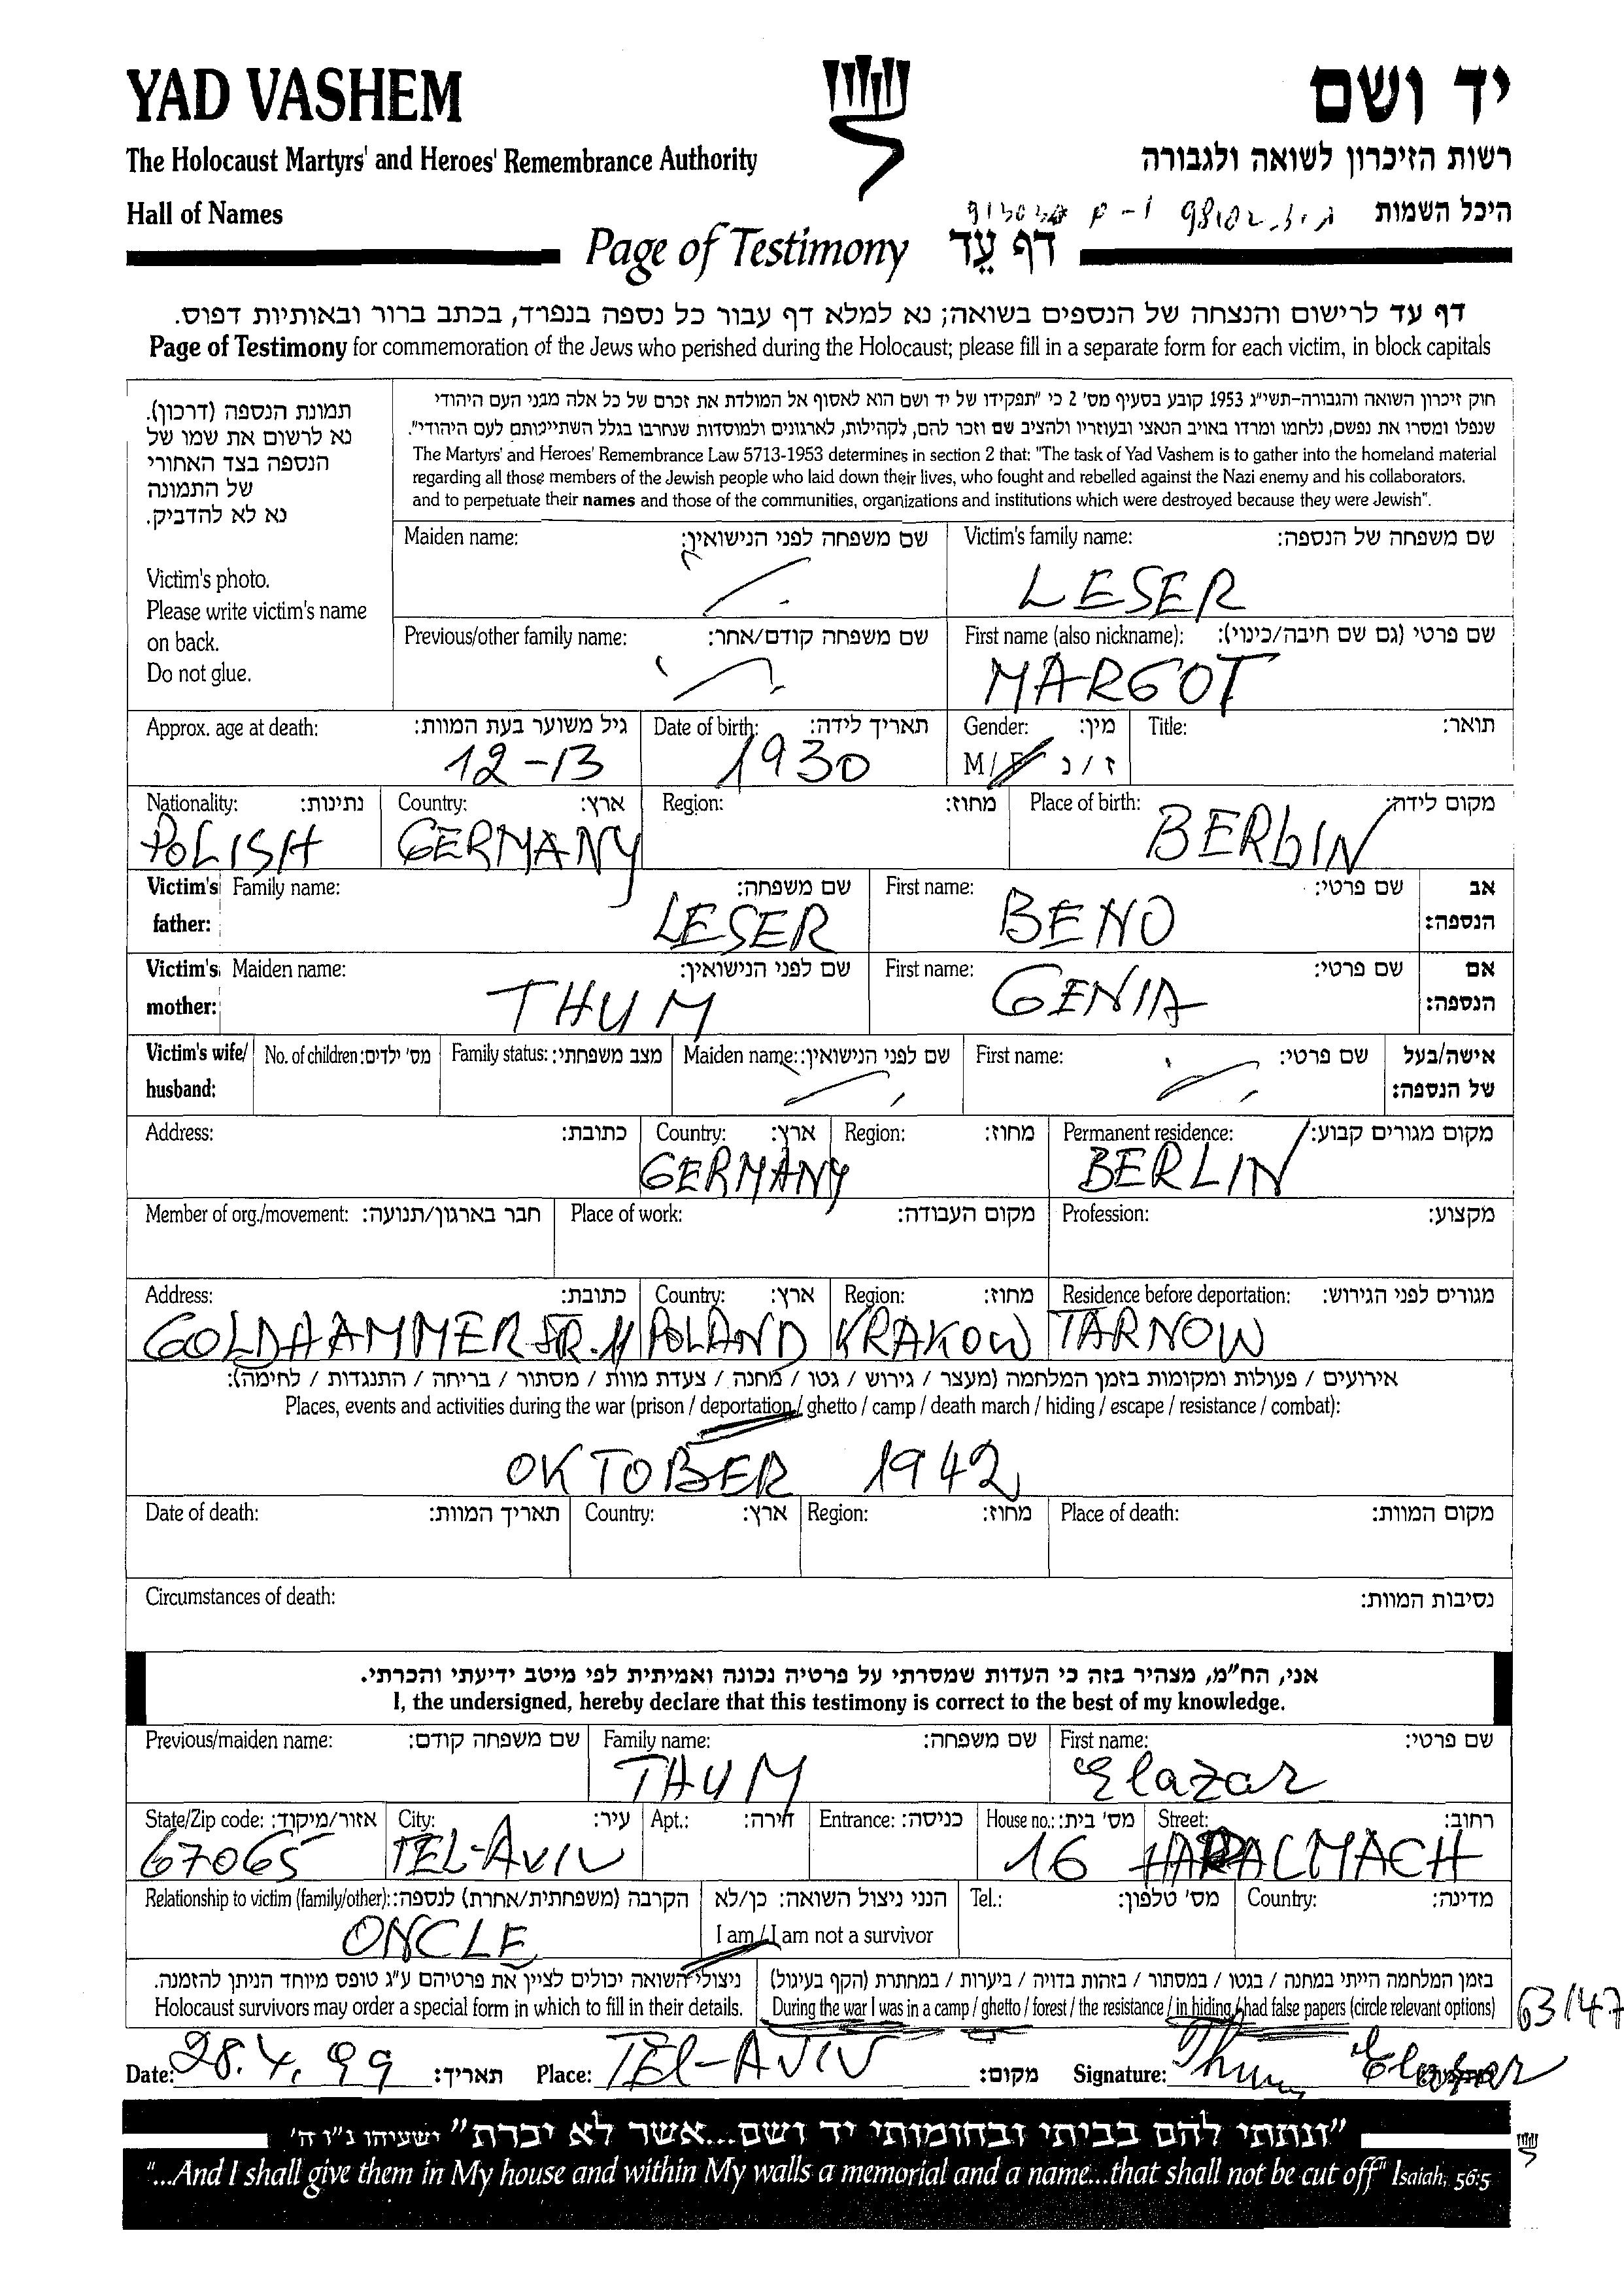 YAD VASHEM
יד ושם
The Holocaust Martyrs' and Heroes' Remembrance Authority
רשות הזיכרון לשואה ולגבורה
Hall of Names
היכל השמות
Page of Testimony דף עֵד
דף עד לרישום והנצחה של הנספים בשואה; נא למלא דף עבור כל נספה בנפרד, בכתב ברור ובאותיות דפוס.
Page of Testimony for commemoration of the Jews who perished during the Holocaust; please fill in a separate form for each victim, in block capitals
תמונת הנספה (דרכון).
נא לרשום את שמו של
הנספה בצד האחורי
של התמונה
נא לא להדביק.
Victim's photo.
Please write victim's name
on back.
Do not glue.
חוק זיכרון השואה והגבורה-תשי"ג 1953 קובע בסעיף מס' 2 כי "תפקידו של יד ושם הוא לאסוף אל המולדת את זכרם של כל אלה מבני העם היהודי
שנפלו ומסרו את נפשם, נלחמו ומרדו באויב הנאצי ובעוזריו ולהציב שם וזכר להם, לקהילות, לארגונים ולמוסדות שנחרבו בגלל השתייכותם לעם היהודי".
The Martyrs' and Heroes' Remembrance Law 5713-1953 determines in section 2 that: "The task of Yad Vashem is to gather into the homeland material
regarding all those members of the Jewish people who laid down their lives, who fought and rebelled against the Nazi enemy and his collaborators,
and to perpetuate their names and those of the communities, organizations and institutions which were destroyed because they were Jewish".
Maiden name: שם משפחה לפני הנישואין: Victim's family name: שם משפחה של הנספה:
LESER
Previous/other family name: שם משפחה קודם/אחר: First name (also nickname): שם פרטי (גם שם חיבה/כינוי):
MARGOT
Approx. age at death: גיל משוער בעת המוות: Date of birth: תאריך לידה: Gender: מין: Title: תואר:
12-13 1930 M / F ז / נ
Nationality: נתינות: Country: ארץ: Region: מחוז: Place of birth: מקום לידה:
POLISH GERMANY BERLIN
Victim's father: Family name: שם משפחה: First name: שם פרטי: אב הנספה:
LESER BENO
Victim's mother: Maiden name: שם לפני הנישואין: First name: שם פרטי: אם הנספה:
THUM GENIA
Victim's wife/husband: No. of children: מס' ילדים: Family status: מצב משפחתי: Maiden name: שם לפני הנישואין: First name: שם פרטי: אישה/בעל של הנספה:
Address: כתובת: Country: ארץ: Region: מחוז: Permanent residence: מקום מגורים קבוע:
GERMANY BERLIN
Member of org./movement: חבר בארגון/תנועה: Place of work: מקום העבודה: Profession: מקצוע:
Address: כתובת: Country: ארץ: Region: מחוז: Residence before deportation: מגורים לפני הגירוש:
GOLDHAMMER STR. 11 POLAND KRAKOW TARNOW
אירועים / פעולות ומקומות בזמן המלחמה (מעצר / גירוש / גטו / מחנה / צעדת מוות / מסתור / בריחה / התנגדות / לחימה):
Places, events and activities during the war (prison / deportation / ghetto / camp / death march / hiding / escape / resistance / combat):
OKTOBER 1942
Date of death: תאריך המוות: Country: ארץ: Region: מחוז: Place of death: מקום המוות:
Circumstances of death: נסיבות המוות:
אני, הח"מ, מצהיר בזה כי העדות שמסרתי על פרטיה נכונה ואמיתית לפי מיטב ידיעתי והכרתי.
I, the undersigned, hereby declare that this testimony is correct to the best of my knowledge.
Previous/maiden name: שם משפחה קודם: Family name: שם משפחה: First name: שם פרטי:
THUM Elazar
State/Zip code: אזור/מיקוד: City: עיר: Apt.: דירה: Entrance: כניסה: House no.: מס' בית: Street: רחוב:
67065 TEL-AVIV 16 HAPALMACH
Relationship to victim (family/other): הקרבה (משפחתית/אחרת) לנספה: הנני ניצול השואה: כן/לא Tel.: מס' טלפון: Country: מדינה:
ONCLE I am / I am not a survivor
ניצולי השואה יכולים לציין את פרטיהם ע"ג טופס מיוחד הניתן להזמנה.
Holocaust survivors may order a special form in which to fill in their details.
בזמן המלחמה הייתי במחנה / בגטו / במסתור / בזהות בדויה / ביערות / במחתרת (הקף בעיגול)
During the war I was in a camp / ghetto / forest / the resistance / in hiding / had false papers (circle relevant options)
63/47
Date: 28.4.99 תאריך: Place: TEL-AVIV מקום: Signature: Thum Elazar
"ונתתי להם בביתי ובחומותי יד ושם...אשר לא יכרת" ישעיהו נ"ו ה'
"...And I shall give them in My house and within My walls a memorial and a name...that shall not be cut off" Isaiah, 56:5